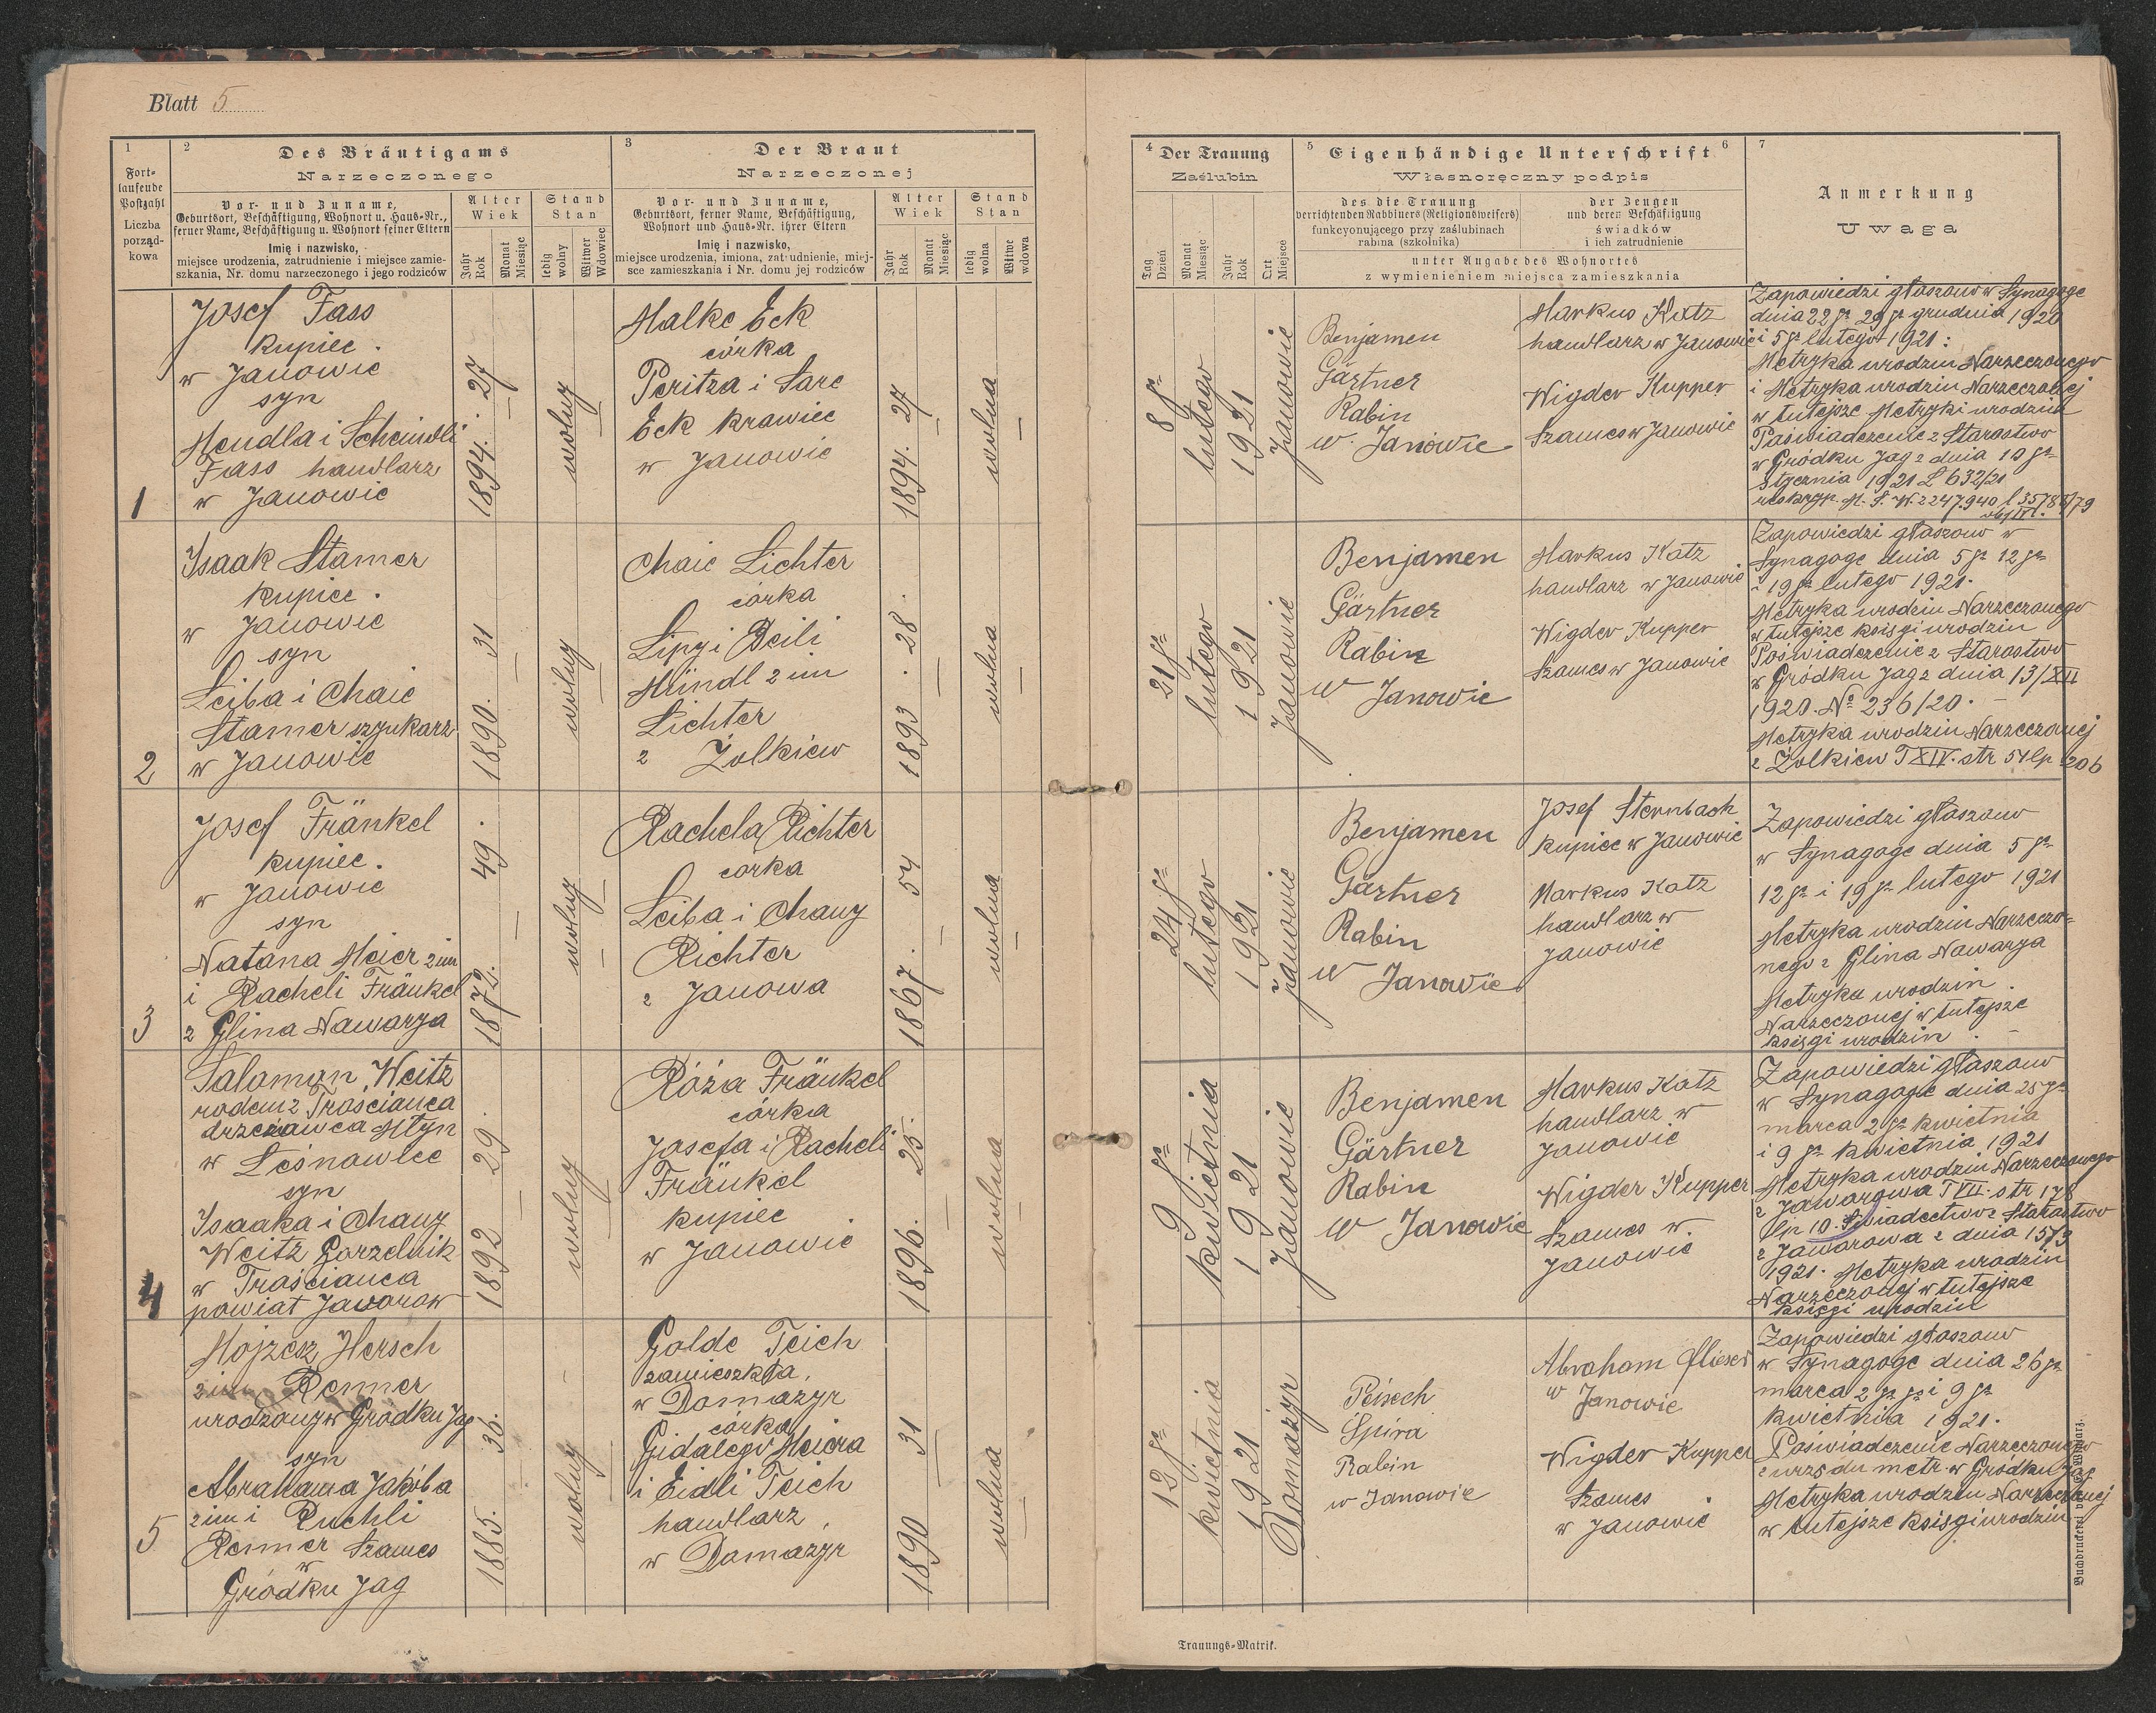 Blatt 5
1
Fort-
laufende
Postzahl
Liczba
porząd-
kowa
2
Des Bräutigams
Narzeczonego
Vor- und Zuname,
Geburtsort, Beschäftigung, Wohnort u. Haus-Nr.,
ferner Name, Beschäftigung u. Wohnort seiner Eltern
Imię i nazwisko,
miejsce urodzenia, zatrudnienie i miejsce zamie-
szkania, Nr. domu narzeczonego i jego rodziców
Alter
Wiek
Jahr
Rok
Monat
Miesiąc
Stand
Stan
ledig
wolny
Witwer
Wdowiec
3
Der Braut
Narzeczonej
Vor- und Zuname,
Geburtsort, ferner Name, Beschäftigung,
Wohnort und Haus-Nr. ihrer Eltern
Imię i nazwisko,
miejsce urodzenia, imiona, zatrudnienie, miej-
sce zamieszkania i Nr. domu jej rodziców
Alter
Wiek
Jahr
Rok
Monat
Miesiąc
Stand
Stan
ledig
wolna
Witwe
wdowa
4
Der Trauung
Zaślubin
Tag
Dzień
Monat
Miesiąc
Jahr
Rok
Ort
Miejsce
5
Eigenhändige Unterschrift
6
Własnoręczny podpis
des die Trauung
verrichtenden Rabbiners (Religionsweisers)
funkcyonującego przy zaślubinach
rabina (szkolnika)
der Zeugen
und deren Beschäftigung
świadków
i ich zatrudnienie
unter Angabe des Wohnortes
z wymienieniem miejsca zamieszkania
7
Anmerkung
Uwaga
1
Josef Fass
kupiec.
w Janowie
syn
Mendla i Scheindli
Fass handlarz
w Janowie
1894. 27
wolny
Malke Eck
córka
Peritza i Sare
Eck krawiec
w Janowie
1894. 27
wolna
8go
lutego
1921
Janowie
Benjamen
Gärtner
Rabin
w. Janowie
Markus Katz
handlarz w Janowie
Wigder Kupper
Szames w Janowie
Zapowiedzi głaszono w Synagoge
dnia 22go 29go grudnia 1920
i 5go lutego 1921:
Metryka urodzin Narzeczonego
i Metryka urodzin Narzeczonej
w tutejsze Metryki urodzin
Paświadczenie z Starostwo
w Gródku Jag z dnia 10go
Stycznia 1921 L 632/21
2
Isaak Stamer
kupiec.
w Janowie
syn
Leiba i Chaie
Stamer szynkarz
w Janowie
1890. 31
wolny
Chaie Lichter
córka
Lipy i Reili
Mindl 2 im
Lichter
z Żolkiew
1893. 28.
wolna
21go
lutego
1921
Janowie
Benjamen
Gärtner
Rabin
w Janowie
Markus Katz
handlarz w Janowie
Wigder Kupper
Szames w Janowie
Zapowiedzi głaszono w
Synagoge dnia 5go 12go
i 19go lutego 1921.
Metryka urodzin Narzeczonego
w tutejsze księgi urodzin
Poświadczenie z Starostwo
w Gródku Jag z dnia 13/XII
1920. No 236/20.
Metryka urodzin Narzeczonej
z Żolkiew T XIV. str 54 lp 206
3
Josef Fränkel
kupiec.
w Janowie
syn
Natana Meier 2 im
i Racheli Fränkel
z Glina Nawarya
1872. 49.
wolny
Rachela Richter
corka
Leiba i Chany
Richter
z Janowa
1867. 54
wolna
24go
lutego
1921
Janowie
Benjamen
Gärtner
Rabin
w Janowie
Josef Sternbach
kupiec w Janowie
Markus Katz
handlarz w
Janowie
Zapowiedzi głaszono
w Synagoge dnia 5go
12go i 19go lutego 1921
Metryka urodzin Narzeczo-
nego z Glina Nawarya
Metryka urodzin
Narzeczonej w tutejsze
księgi urodzin.
4
Saloman Weitz
rodem z Traścianca
dzrzeżawca Młyn
w Leśnowlce
syn
Isaaka i Chany
Weitz Gorzelnik
w Traścianca
powiat Jaworow
1892 29.
wolny
Róża Fränkel
córka
Josefa i Racheli
Fränkel
kupiec
w Janowie
1896. 25.
wolna
9go
kwietnia
1921
Janowie
Benjamen
Gärtner
Rabin
w Janowie
Markus Katz
handlarz w
Janowie
Wigder Kupper
Szames w.
Janowie.
Zapowiedzi głaszono
w Synagoge dnia 25go
marca 2go kwietnia
i 9go kwietnia 1921
Metryka urodzin Narzeczonego
z Jaworowa T VII. str 178
lp 10. Świadectwo z Starostwo
z Jaworowa z dnia 15/3
1921. Metryka urodzin
Narzeczonej w tutejsze
księgi urodzin
5
Mojzesz Hersch
2 im Renner
urodzony w Gródku Jag
syn
Abrahama Jakóba
2 im i Ruchli
Renner Szames
w
Gródku Jag
1885. 36.
wolny
Golde Teich
zamieszkła
w Domazyr
córka
Gidalego Meiera
i Eidli Teich
handlarz
w Domazyr
1890 31
wolna
12go
kwietnia
1921
Domazyr
Peisech
Spira
Rabin
w Janowie
Abraham Flieser
w Janowie
Wigder Kupper
Szames
w Janowie
Zapowiedzi głaszono
w Synagoge dnia 26go
marca 2go i 9go
kwietnia 1921.
Poświadczenie Narzeczonego
z urzędu metr w Gródku Jag
Metryka urodzin Narzeczonej
w tutejsze księgi urodzin
Trauungs-Matrik.